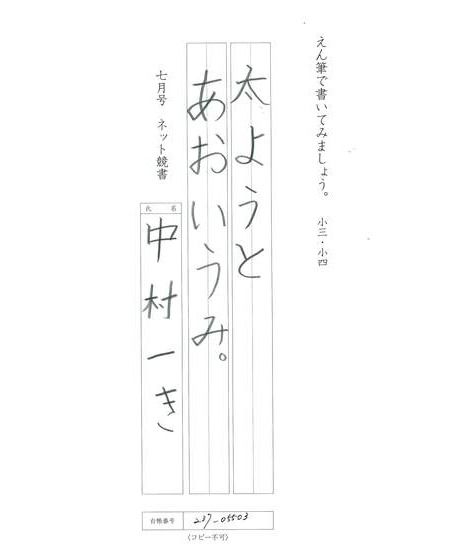 えん筆で書いてみましょう。 小三・小四
太ようと
あおいうみ。
七月号 ネット競書
氏 名
中村一き
台帳番号 237-05503
〈コピー不可〉